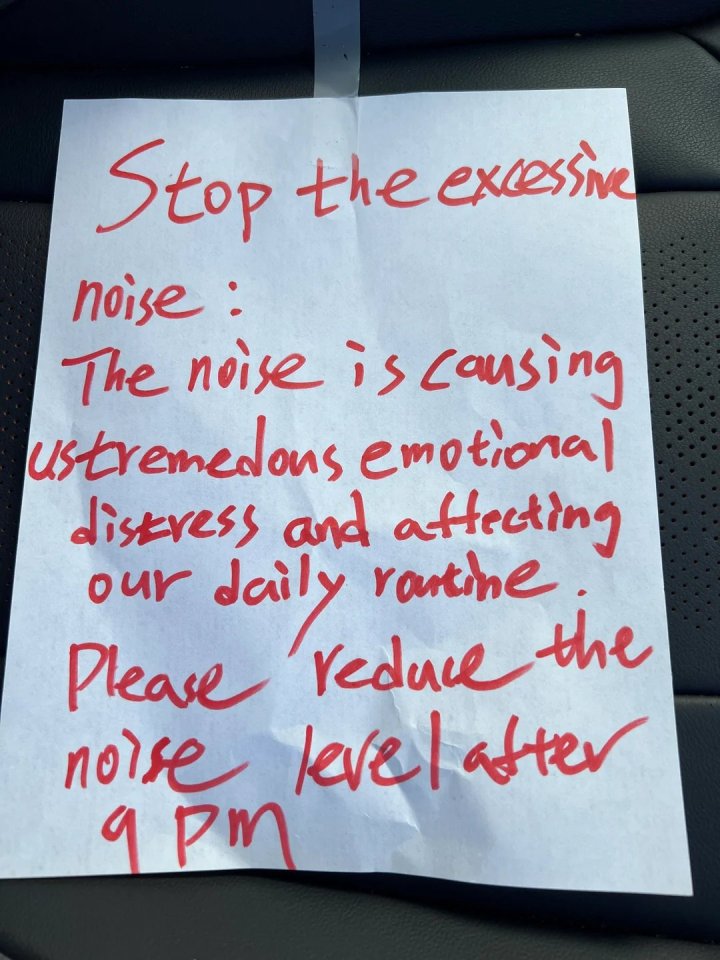 Stop the excessive
noise :
The noise is causing
us tremedous emotional
distress and affecting
our daily routine.
Please reduce the
noise level after
9 pm